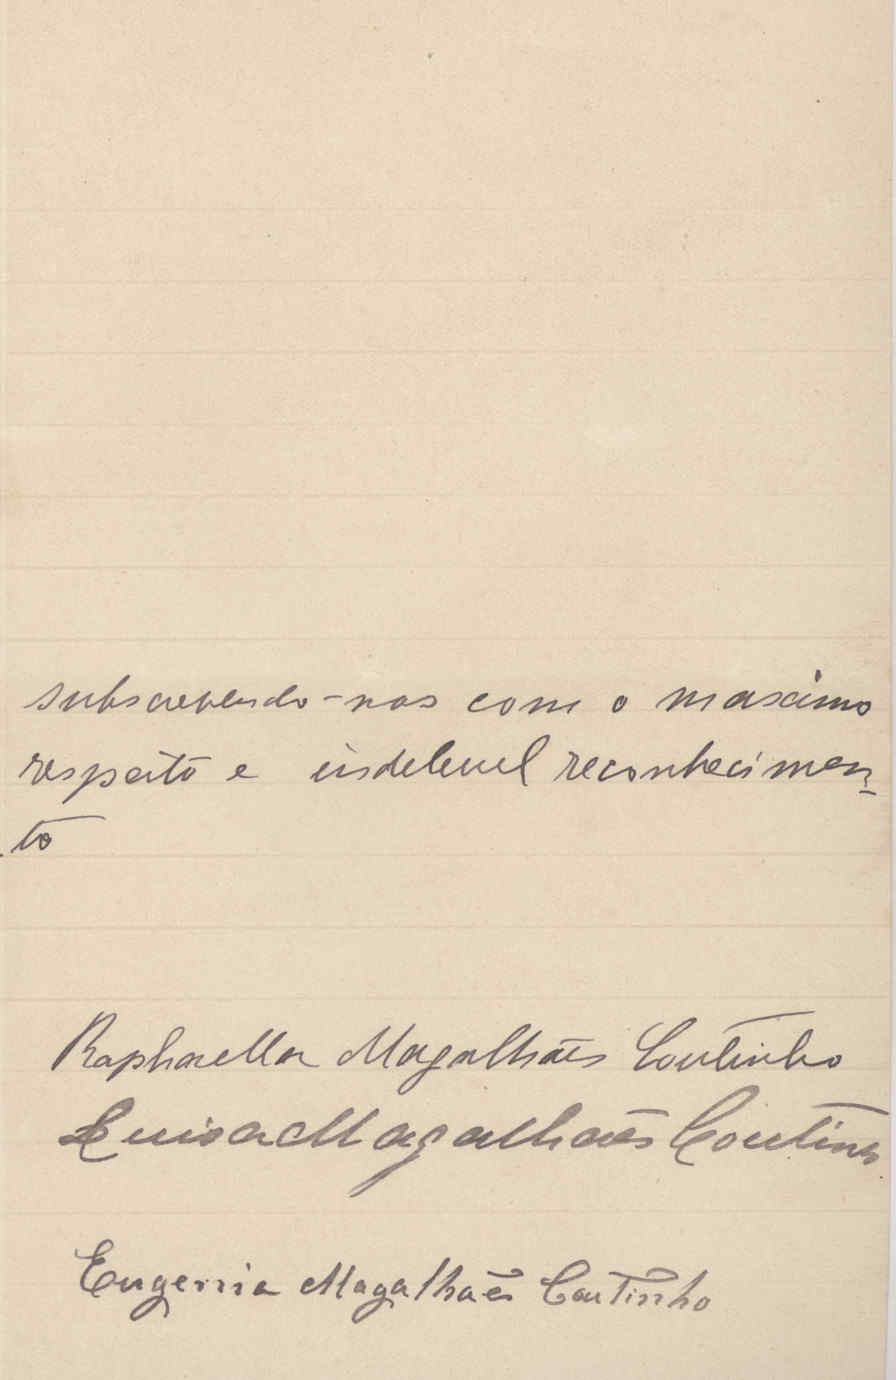 subscrevendo-nos com o maximo
respeito e indelevel reconhecimen-
to
Raphaella Magalhães Coutinho
Luisa Magalhães Coutinho
Eugenia Magalhães Coutinho